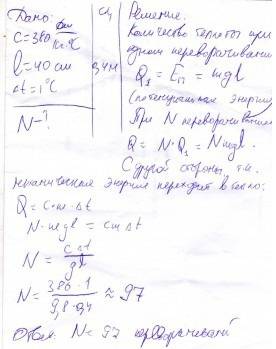 Дано:
C=380 Дж/кг·°C
l=40 см
Δt=1°C
N-?
СИ
0,4 м
Решение.
Количество теплоты при
одном переворачивании
Q₁ = Eп = mgl
(потенциальная энергия)
При N переворачиваниях
Q = N·Q₁ = Nmgl.
С другой стороны, т.к.
механическая энергия переходит в тепло:
Q = c·m·Δt
N·mgl = cmΔt
N = cΔt/gl
N = 380·1/9,8·0,4 ≈ 97
Ответ: N=97 переворачиваний